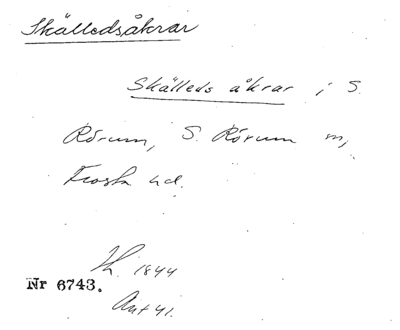 Skälledsåkrar
Skälleds åkrar i S.
Rörum, S. Rörum sn,
Frosta hd.
1844
Nr 6743.
Ant 41.